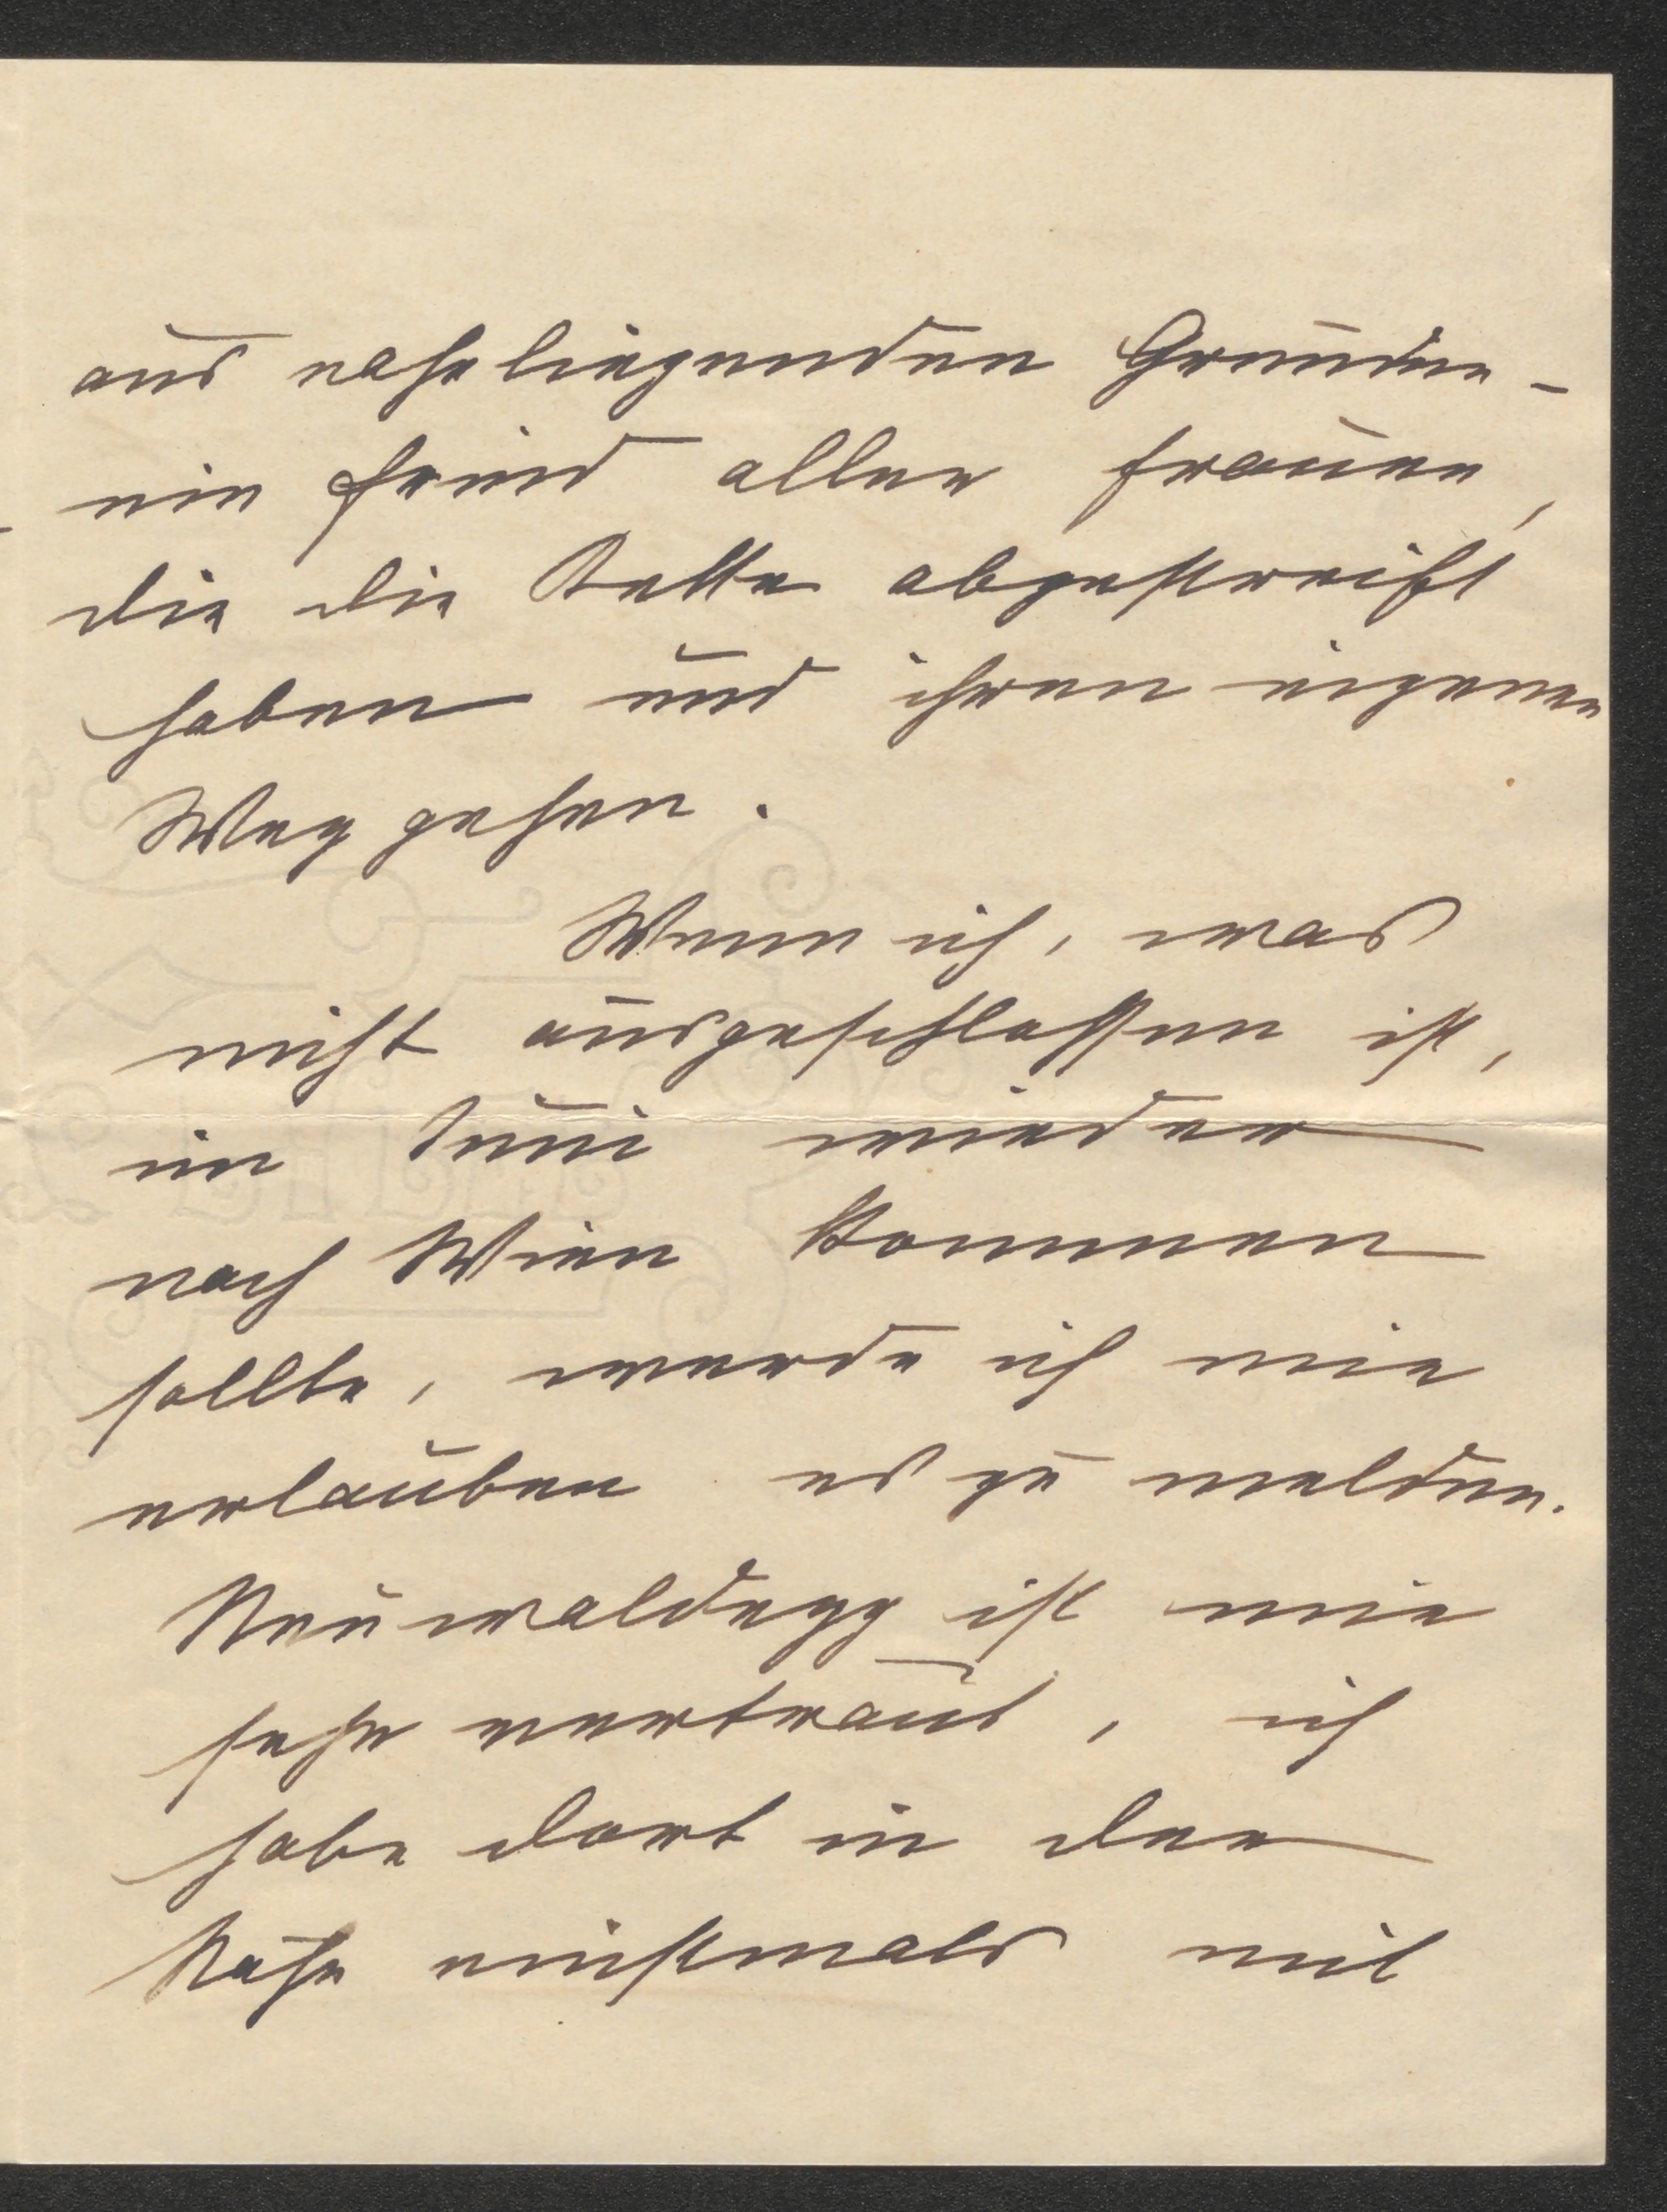 aus naheliegenden Gründen -
ein Feind aller Frauen,
die die Kette abgestreift
haben und ihren eigenen
Weg gehen.
Wenn ich, was
nicht ausgeschlossen ist,
im Juni wieder
nach Wien kommen
sollte, werde ich mir
erlauben es zu melden.
Neuwaldegg ist mir
sehr vertraut, ich
habe dort in der
Nähe einstmals mit